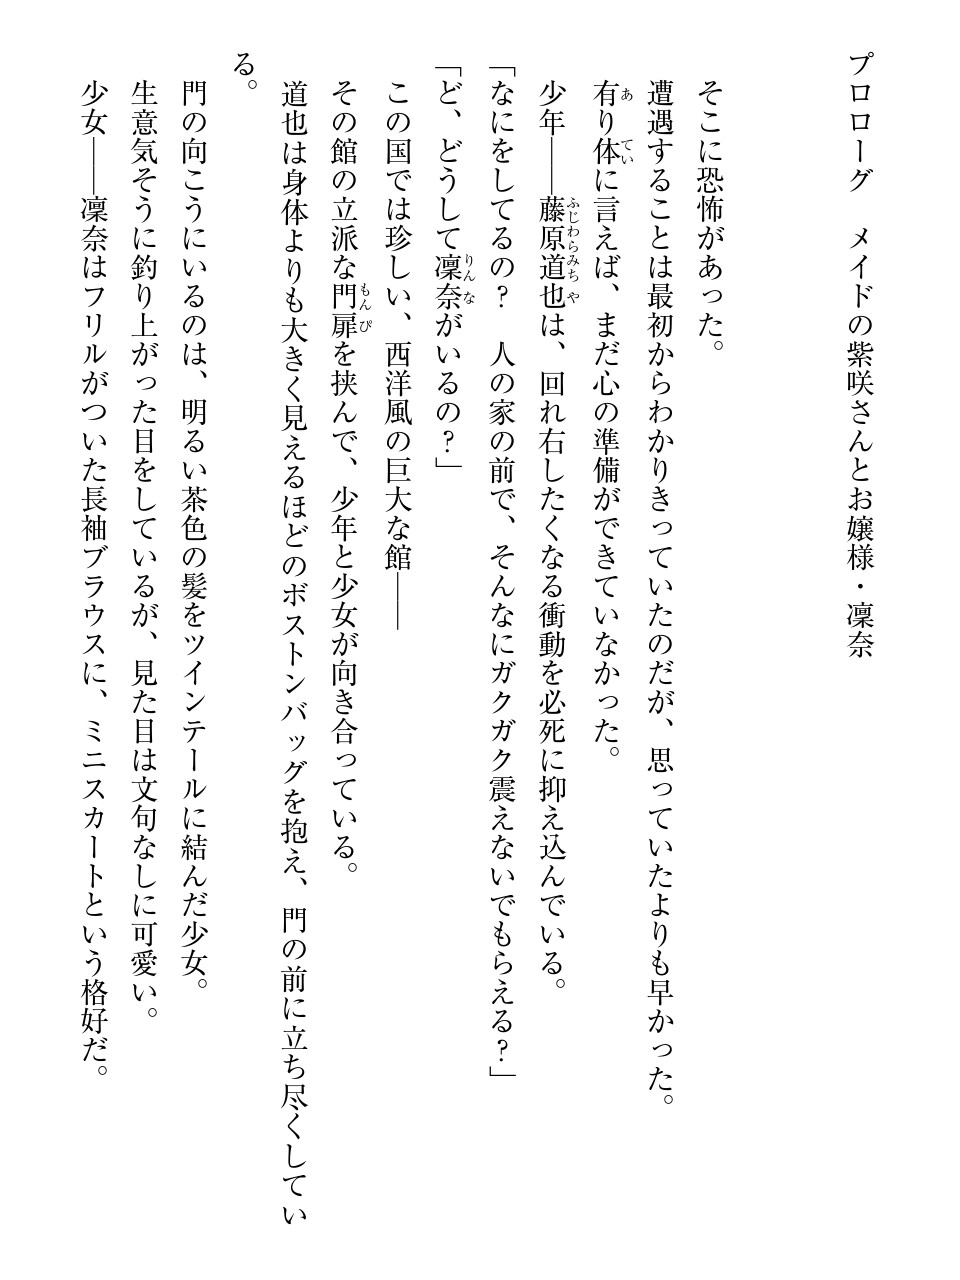 プロローグ　メイドの紫咲さんとお嬢様・凜奈
そこに恐怖があった。
遭遇することは最初からわかりきっていたのだが、思っていたよりも早かった。
有り体に言えば、まだ心の準備ができていなかった。
少年――藤原道也は、回れ右したくなる衝動を必死に抑え込んでいる。
「なにをしてるの？　人の家の前で、そんなにガクガク震えないでもらえる？」
「ど、どうして凜奈がいるの？」
この国では珍しい、西洋風の巨大な館――
その館の立派な門扉を挟んで、少年と少女が向き合っている。
道也は身体よりも大きく見えるほどのボストンバッグを抱え、門の前に立ち尽くしてい
る。
門の向こうにいるのは、明るい茶色の髪をツインテールに結んだ少女。
生意気そうに釣り上がった目をしているが、見た目は文句なしに可愛い。
少女――凜奈はフリルがついた長袖ブラウスに、ミニスカートという格好だ。